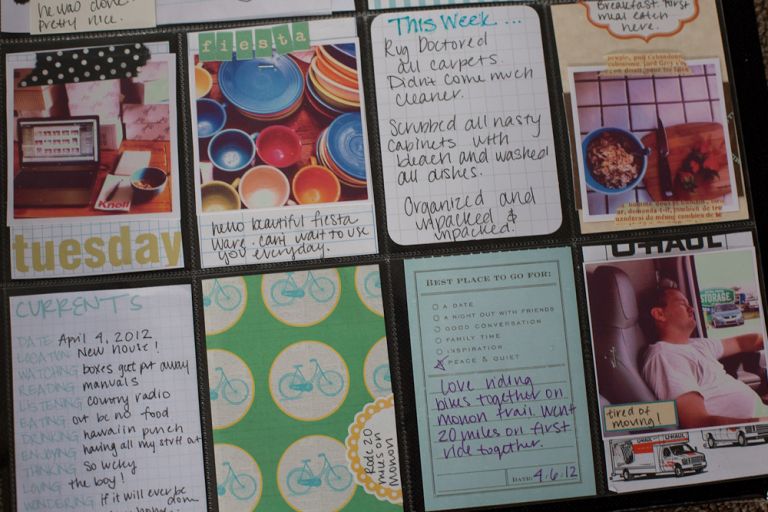 he was done.
pretty nice.
Breakfast. first
meal eaten
here.
fiesta
This Week ...
Rug Doctored
all carpets.
Didnt come much
cleaner.
Scrubbed all nasty
cabinets with
bleach and washed
all dishes.
Organized and
unpacked &
unpacked!
Knoll
tuesday
hello beautiful fiesta
ware. cant wait to use
you everyday.
CURRENTS
DATE April 4, 2012
LOCATION New house!
WATCHING boxes get put away
READING manuals
LISTENING country radio
EATING out bc no food
DRINKING hawaiin punch
ENJOYING having all my stuff out
THINKING so lucky
LOVING the boy!
WONDERING if it will ever be
done
Rode 20
miles on
Monon
BEST PLACE TO GO FOR:
A DATE
A NIGHT OUT WITH FRIENDS
GOOD CONVERSATION
FAMILY TIME
INSPIRATION
PEACE & QUIET
love riding
bikes together on
monon trail. went
20 miles on first
ride together.
DATE: 4.6.12
U-HAUL
STORAGE
tired of
moving!
U-HAUL